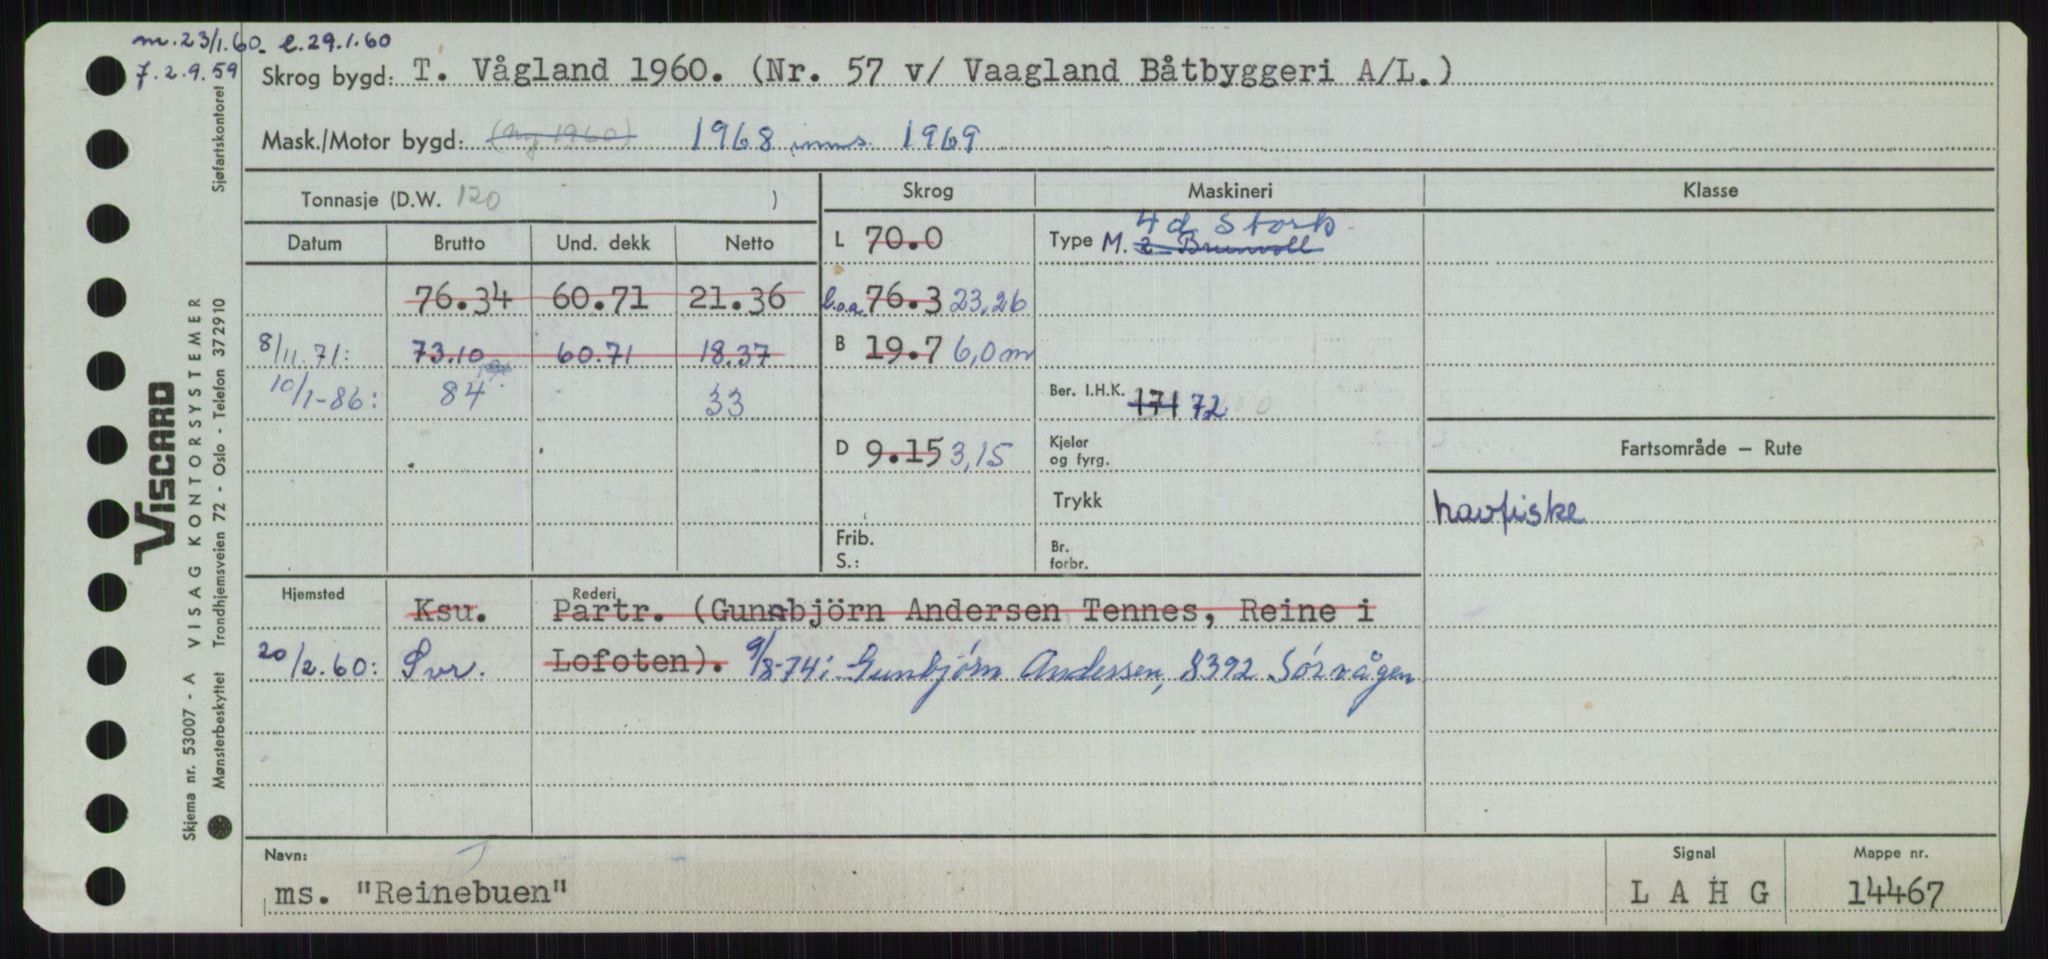 m. 23/1.60. l. 29.1.60
7. 2. 9. 59
Skrog bygd: T. Vågland 1960. (Nr. 57 v/ Vaagland Båtbyggeri A/L.)
Mask./Motor bygd: (ny 1960) 1968 inns. 1969
Tonnasje (D.W. 120 )
Skrog Maskineri Klasse
Datum Brutto Und. dekk Netto
L 70.0
Type M. 4 d. Stork
2 Brunvoll
76.34 60.71 21.36
l.o.a. 76.3 23,26
8/11.71: 73.10 60.71 18.37
B 19.7 6,0 m
10/1-86: 84 33
Ber. I.H.K. 171 72
D 9.15 3,15
Kjeler
og fyrg.
Fartsområde – Rute
Trykk
havfiske
Frib.
S.:
Br.
forbr.
Hjemsted Rederi
Ksu. Partr. (Gunnbjörn Andersen Tennes, Reine i
20/2.60: Svr. Lofoten). 9/8-74: Gunbjørn Andersen, 8392 Sørvågen
Navn: Signal Mappe nr.
ms. "Reinebuen" LAHG 14467
VISCARD
VISAG KONTORSYSTEMER
Skjema nr. 53007 - A
Mønsterbeskyttet Trondhjemsveien 72 - Oslo - Telefon 372910
Sjøfartskontoret